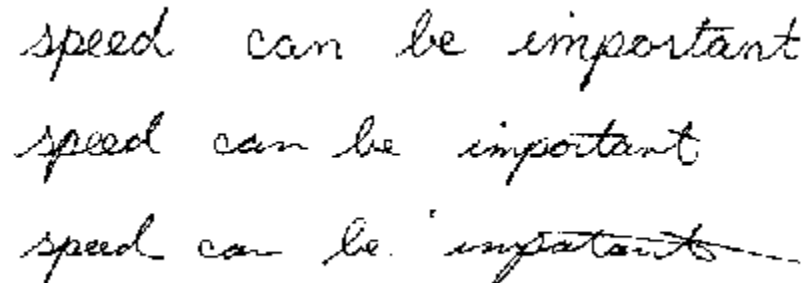 speed can be important
speed can be important
speed can be important